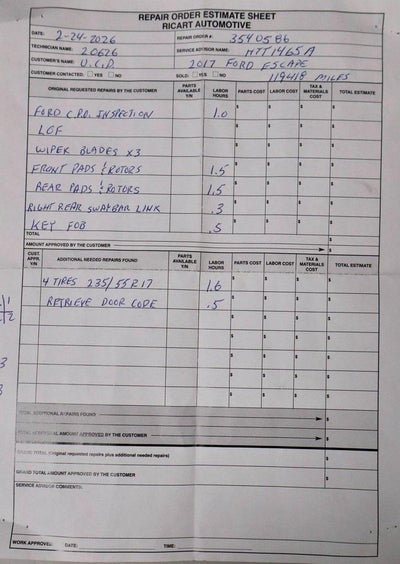 REPAIR ORDER ESTIMATE SHEET
RICART AUTOMOTIVE
DATE: 2-24-2026 REPAIR ORDER #: 3540586
TECHNICIAN NAME: 20626 SERVICE ADVISOR NAME: MTT1465A
CUSTOMER'S NAME: U.C.D. 2017 FORD ESCAPE
CUSTOMER CONTACTED: YES NO SOLD: YES NO 119418 MILES
ORIGINAL REQUESTED REPAIRS BY THE CUSTOMER PARTS AVAILABLE Y/N LABOR HOURS PARTS COST LABOR COST TAX & MATERIALS COST TOTAL ESTIMATE
FORD C.P.O. INSPECTION 1.0 $ $ $ $
LOF $ $ $ $
WIPER BLADES x3 $ $ $ $
FRONT PADS & ROTORS 1.5 $ $ $ $
REAR PADS & ROTORS 1.5 $ $ $ $
RIGHT REAR SWAYBAR LINK .3 $ $ $ $
KEY FOB .5 $ $ $ $
TOTAL
AMOUNT APPROVED BY THE CUSTOMER $
CUST. APPR. Y/N ADDITIONAL NEEDED REPAIRS FOUND PARTS AVAILABLE Y/N LABOR HOURS PARTS COST LABOR COST TAX & MATERIALS COST TOTAL ESTIMATE
4 TIRES 235/55R17 1.6 $ $ $ $
RETRIEVE DOOR CODE .5 $ $ $ $
$ $ $ $
$ $ $ $
$ $ $ $
$ $ $ $
TOTAL ADDITIONAL REPAIRS FOUND $
TOTAL ADDITIONAL AMOUNT APPROVED BY THE CUSTOMER $
GRAND TOTAL (Original requested repairs plus additional needed repairs) $
GRAND TOTAL AMOUNT APPROVED BY THE CUSTOMER $
SERVICE ADVISOR COMMENTS:
WORK APPROVED: DATE: TIME: